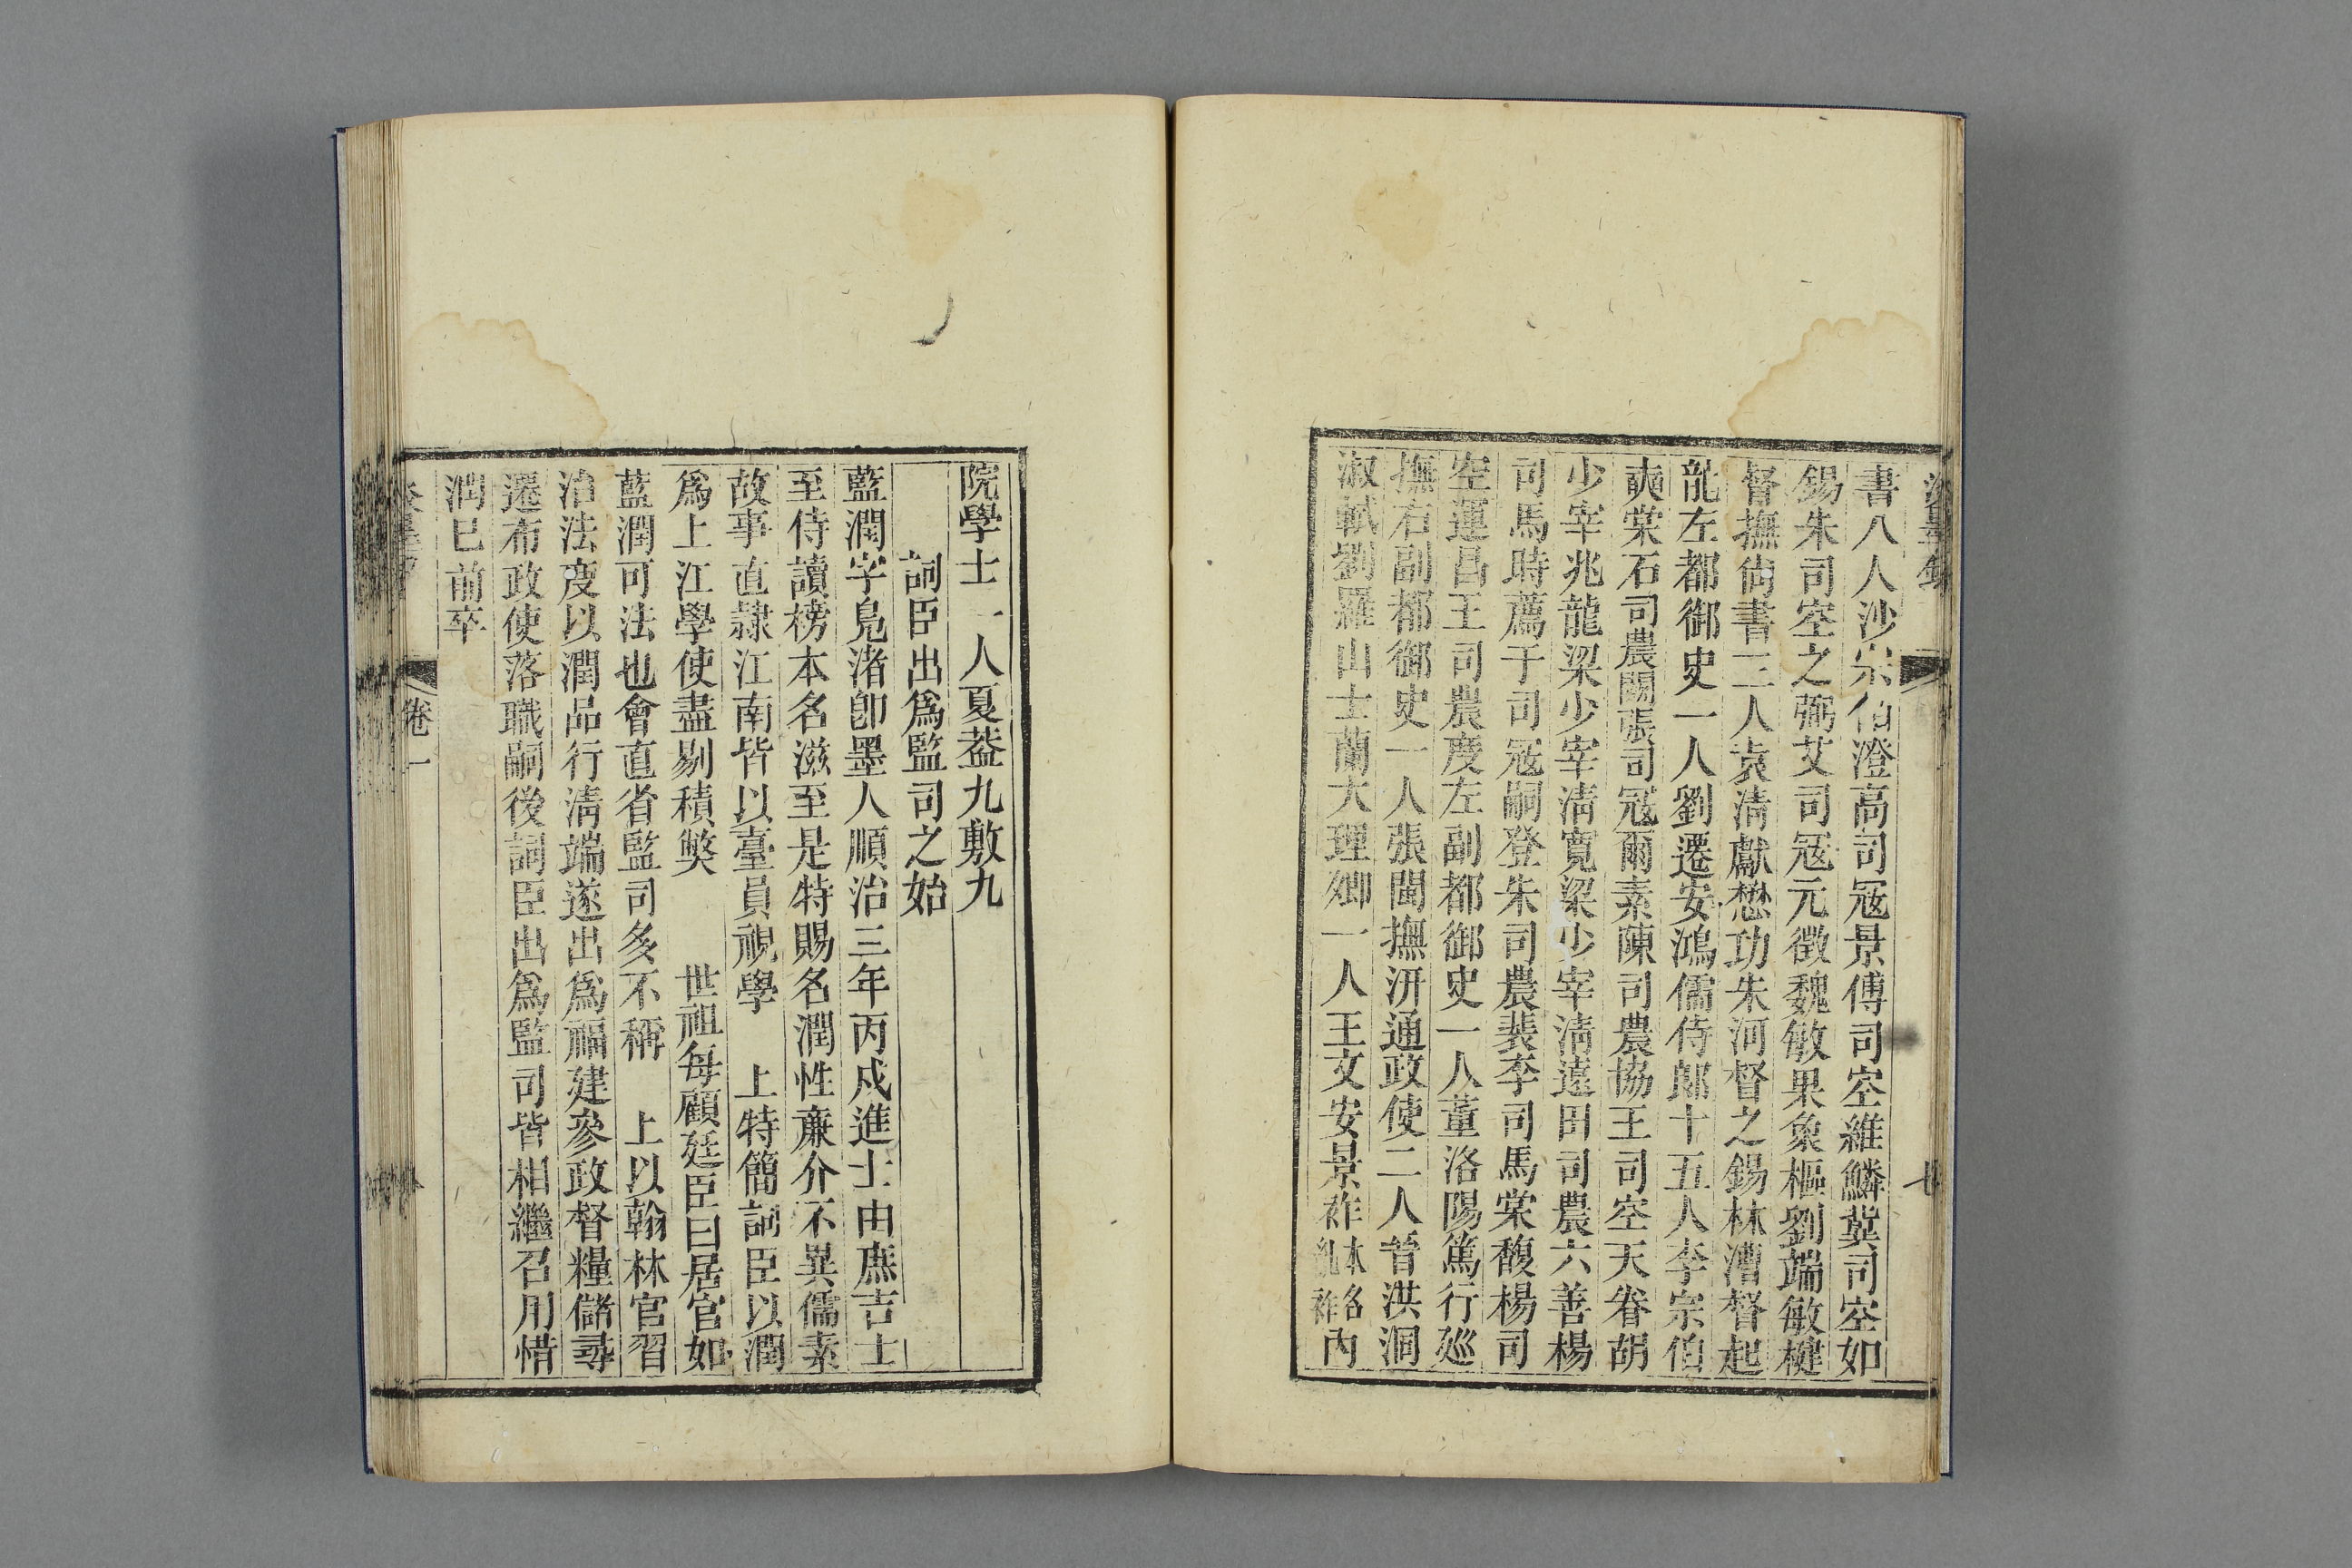 書八人沙宗伯澄高司冦景傅司空維鱗冀司空如
錫朱司空之弼艾司冦元徴魏敏果象樞劉端敏楗
督撫尙書二人袁清獻懋功朱河督之錫林漕督起
龍左都御史一人劉遷安鴻儒侍郎十五人李宗伯
奭棠石司農闊張司冦爾素陳司農協王司空天眷胡
少宰兆龍梁少宰淸寬梁少宰淸遠田司農六善楊
司馬時薦于司冦嗣登朱司農裴李司馬棠馥楊司
空運昌王司農度左副都御史一人董洛陽篤行廵
撫右副都御史一人張閩撫汧通政使二人晉洪洞
淑軾劉羅山士蘭大理卿一人王文安景祚本名紀祚內
七
院學士一人夏葢九敷九
詞臣出爲監司之始
藍潤字鳧渚卽墨人順治三年丙戌進士由庶吉士
至侍讀榜本名滋至是特賜名潤性亷介不異儒素
故事直隸江南皆以臺員視學 上特簡詞臣以潤
爲上江學使盡剔積獘 世祖每顧廷臣曰居官如
藍潤可法也會直省監司多不稱 上以翰林官習
治法度以潤品行淸端遂出爲福建參政督糧儲尋
遷布政使落職嗣後詞臣出爲監司皆相繼召用惜
潤已前卒
卷一